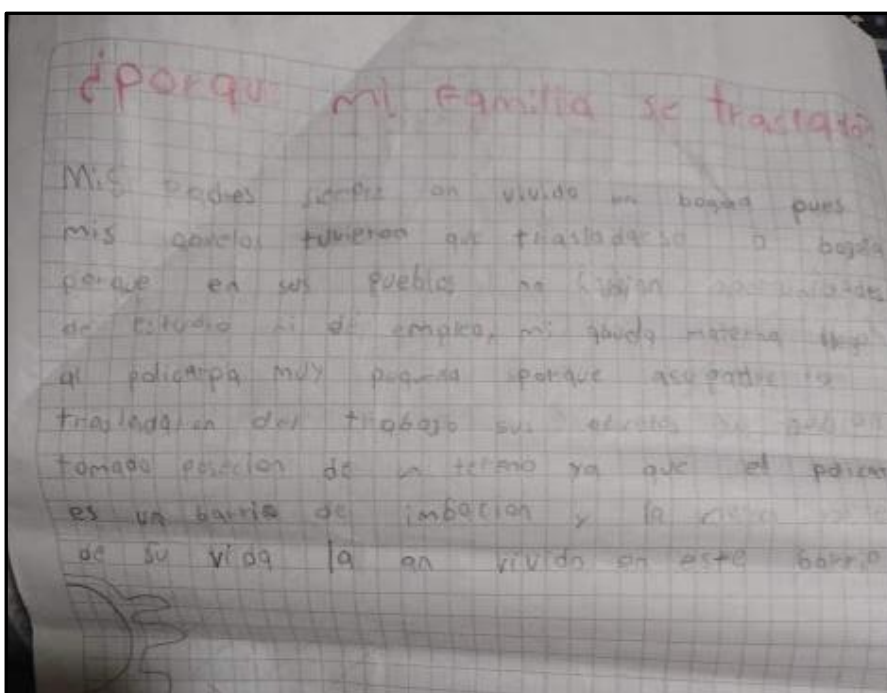 ¿porque mi familia se trasladó?
Mis padres siempre an vivido en bogota pues
mis aboelos tuvieron que trasladarse a bogota
porque en sus pueblos no
de estudio ni de empleo, mi materna
al policarpa muy pequeña porque asu padre lo
trasladaron del trabajo sus
tomado posecion de un terreno ya que el policar
es un barrio de imbacion y la
de su vida la an vivido en este barrio